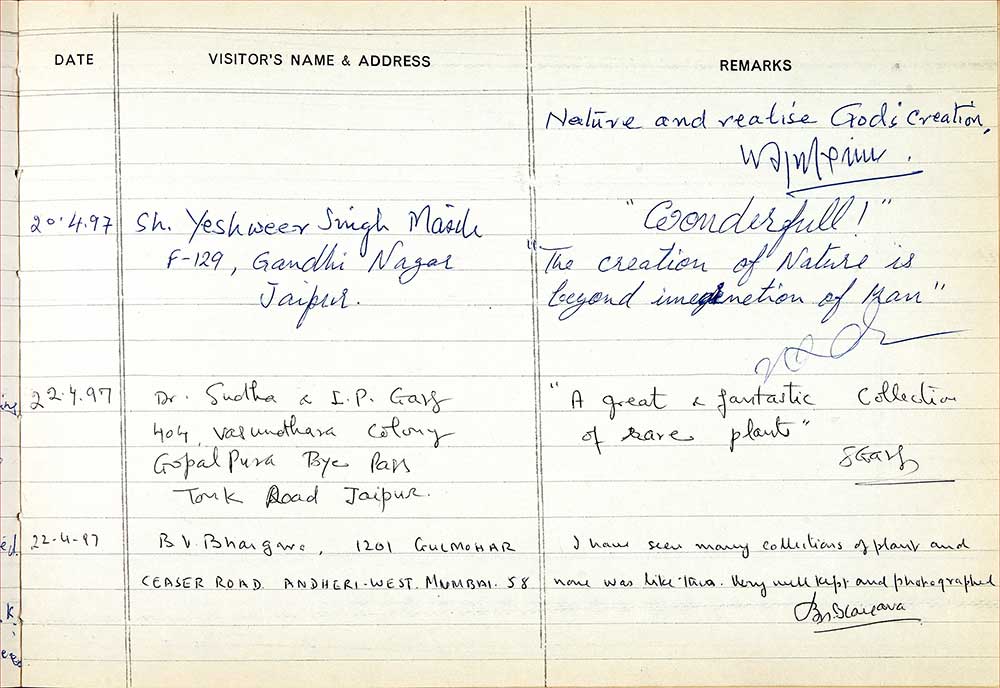 DATE
VISITOR'S NAME & ADDRESS
REMARKS
Nature and realise God's creation,
20.4.97
Sh. Yeshweer Singh
F-129, Gandhi Nagar
Jaipur.
"Wonderfull!"
"The creation of Nature is
beyond imagenetion of Man"
22.4.97
Dr. Sudha & I.P. Garg
404, Vasundhara Colony
Gopal Pura Bye Pass
Tonk Road Jaipur.
"A great & fantastic Collection
of rare plants"
SGarg
22-4-97
B V. Bhargava, 1201 GULMOHAR
CEASER ROAD. ANDHERI-WEST. MUMBAI. 58
I have seen many collections of plant and
none was like this. Very well kept and photographed